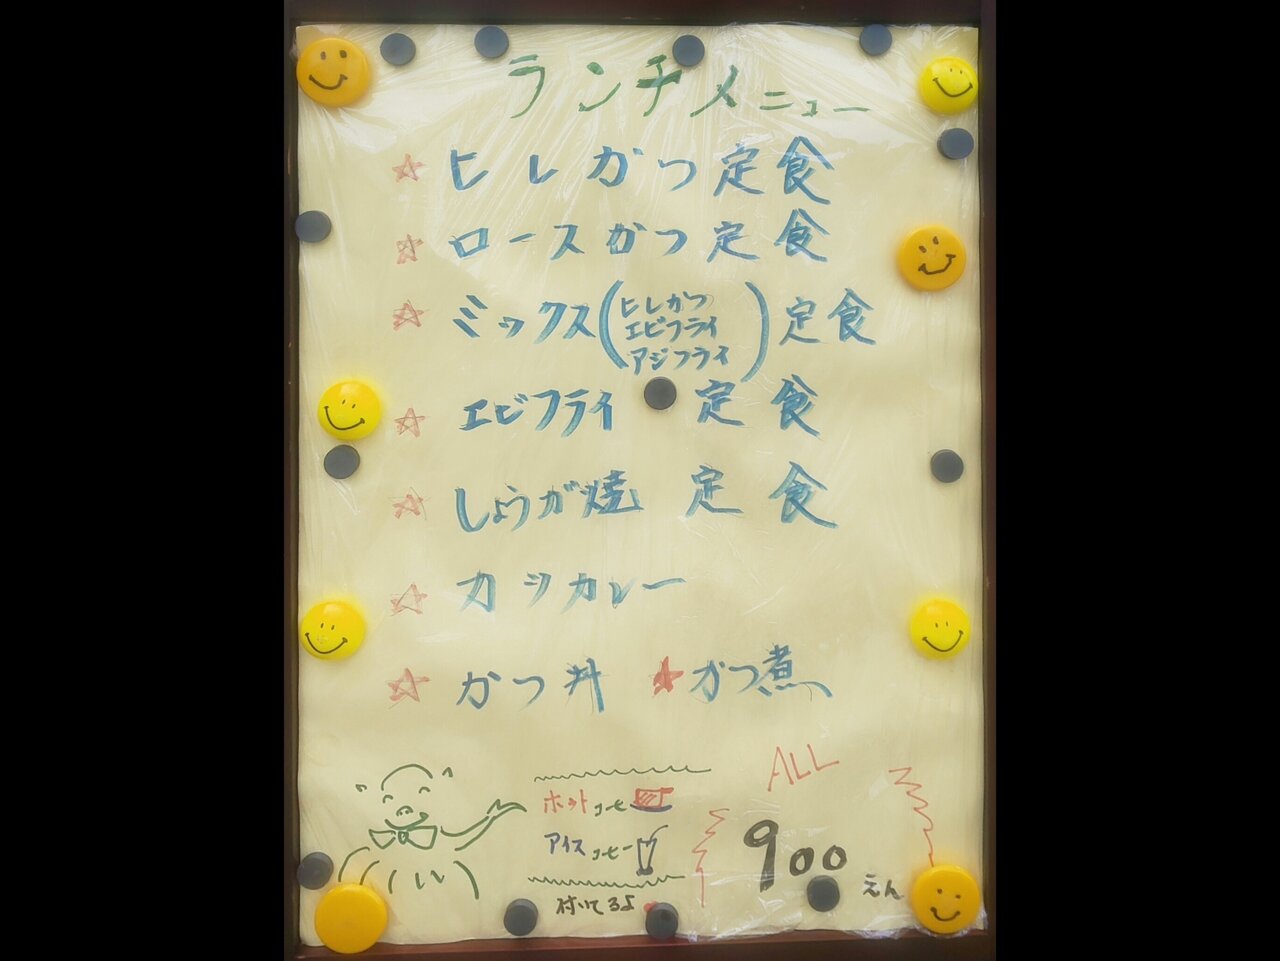 ランチメニュー
☆ ヒレかつ定食
☆ ロースかつ定食
☆ ミックス(ヒレかつ エビフライ アジフライ)定食
☆ エビフライ 定食
☆ しょうが焼 定食
☆ カツカレー
☆ かつ丼 ★かつ煮
ホットコーヒー
アイスコーヒー
付いてるよ
ALL
900えん